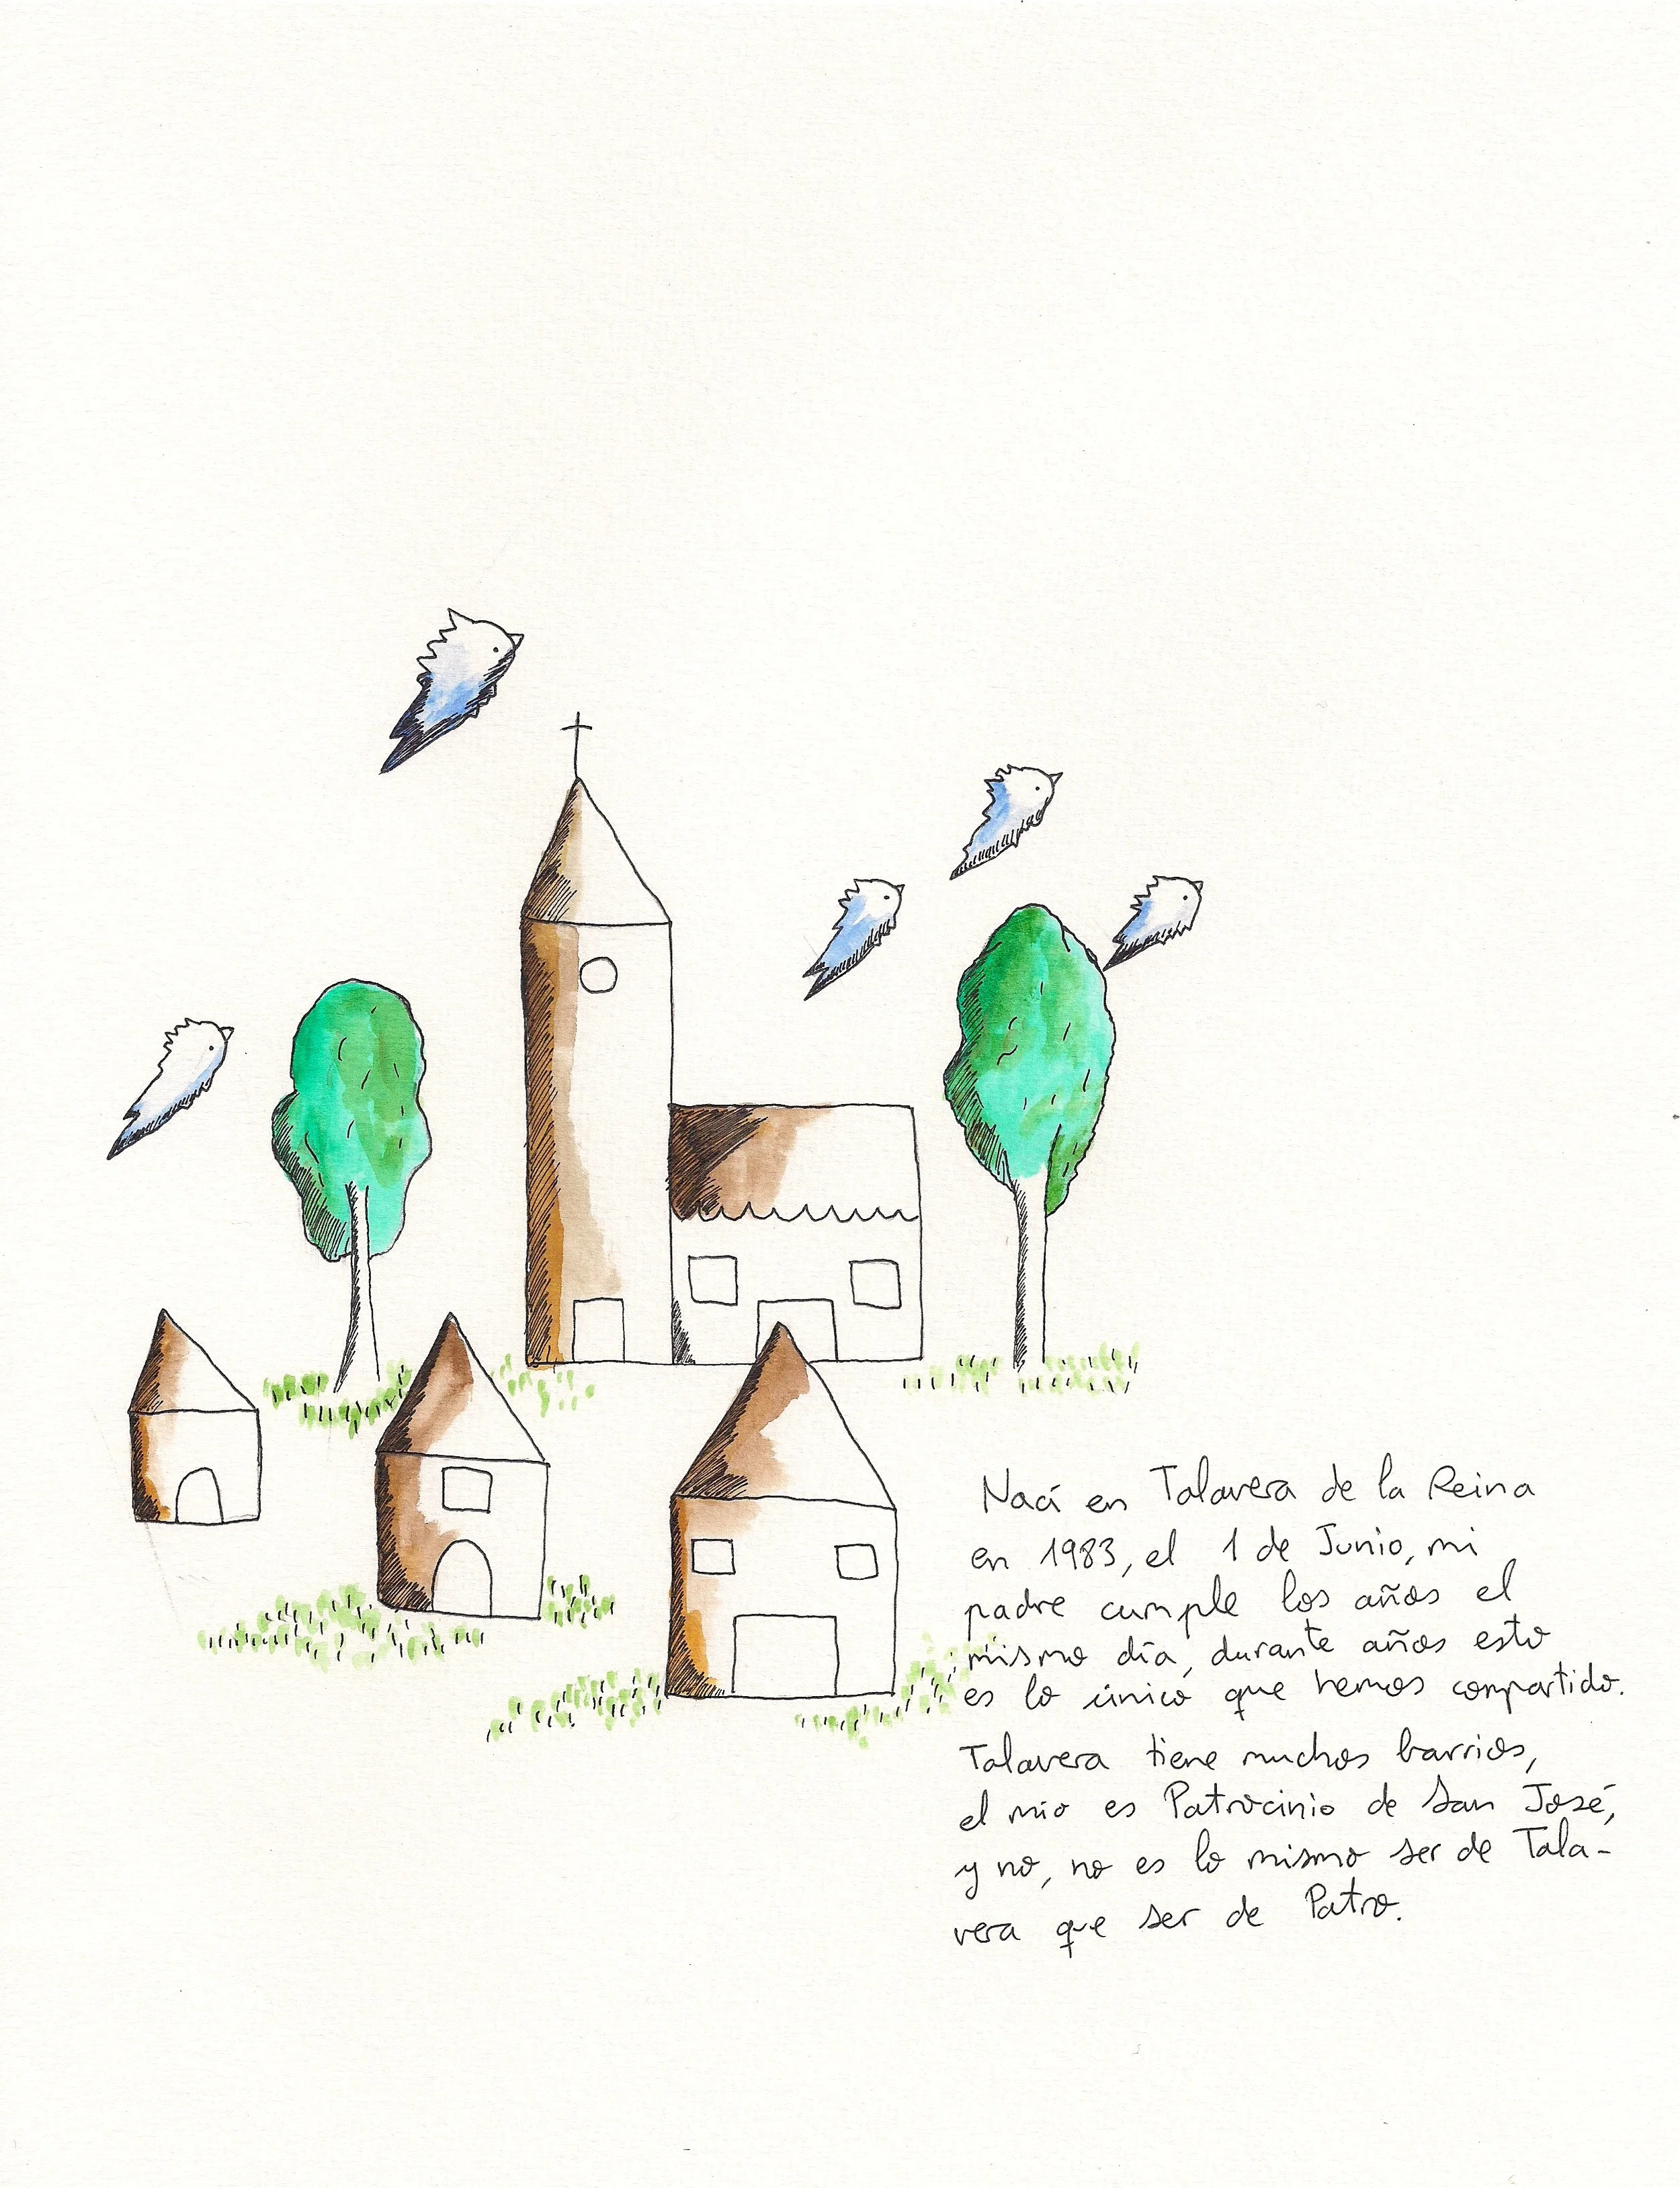 Nací en Talavera de la Reina
en 1983, el 1 de Junio, mi
padre cumple los años el
mismo día, durante años esto
es lo único que hemos compartido.
Talavera tiene muchos barrios,
el mío es Patrocinio de San José,
y no, no es lo mismo ser de Tala-
vera que ser de Patro.